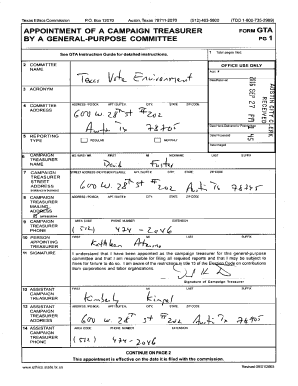 Texas Ethics Commission P.O. Box 12070 Austin, Texas 78711-2070 (512) 463-5800 (TDD 1-800-735-2989)
APPOINTMENT OF A CAMPAIGN TREASURER
BY A GENERAL-PURPOSE COMMITTEE
FORM GTA
PG 1
See GTA Instruction Guide for detailed instructions.
1 Total pages filed:
2 COMMITTEE NAME
Texas Vote Environment
OFFICE USE ONLY
3 ACRONYM
4 COMMITTEE ADDRESS
ADDRESS / PO BOX; APT / SUITE #; CITY; STATE; ZIP CODE
600 W. 28th st #202
Austin Tx 78705
AUSTIN CITY CLERK
RECEIVED
5 REPORTING TYPE
REGULAR
MONTHLY
6 CAMPAIGN TREASURER NAME
FIRST MI NICKNAME LAST SUFFIX
David Foster
7 CAMPAIGN TREASURER STREET ADDRESS
600 W. 28th st #202 Austin Tx 78705
8 CAMPAIGN TREASURER MAILING ADDRESS
ADDRESS / PO BOX; APT / SUITE #; CITY; STATE; ZIP CODE
9 CAMPAIGN TREASURER PHONE
AREA CODE PHONE NUMBER EXTENSION
(512) 474-2046
10 PERSON APPOINTING TREASURER
FIRST MI LAST SUFFIX
11 SIGNATURE
I understand that I have been appointed as the campaign treasurer for this general-purpose
committee and that I am responsible for filing all required reports and that I may be subject to
Signature of Campaign Treasurer
12 ASSISTANT CAMPAIGN TREASURER
FIRST MI LAST SUFFIX
Kimberly
13 ASSISTANT CAMPAIGN TREASURER ADDRESS
ADDRESS / PO BOX; APT / SUITE #; CITY; STATE; ZIP CODE
600 W. 28th st #202 Austin Tx 78705
14 ASSISTANT CAMPAIGN TREASURER PHONE
AREA CODE PHONE NUMBER EXTENSION
(512) 474-2046
CONTINUE ON PAGE 2
This appointment is effective on the date it is filed with the commission.
www.ethics.state.tx.us